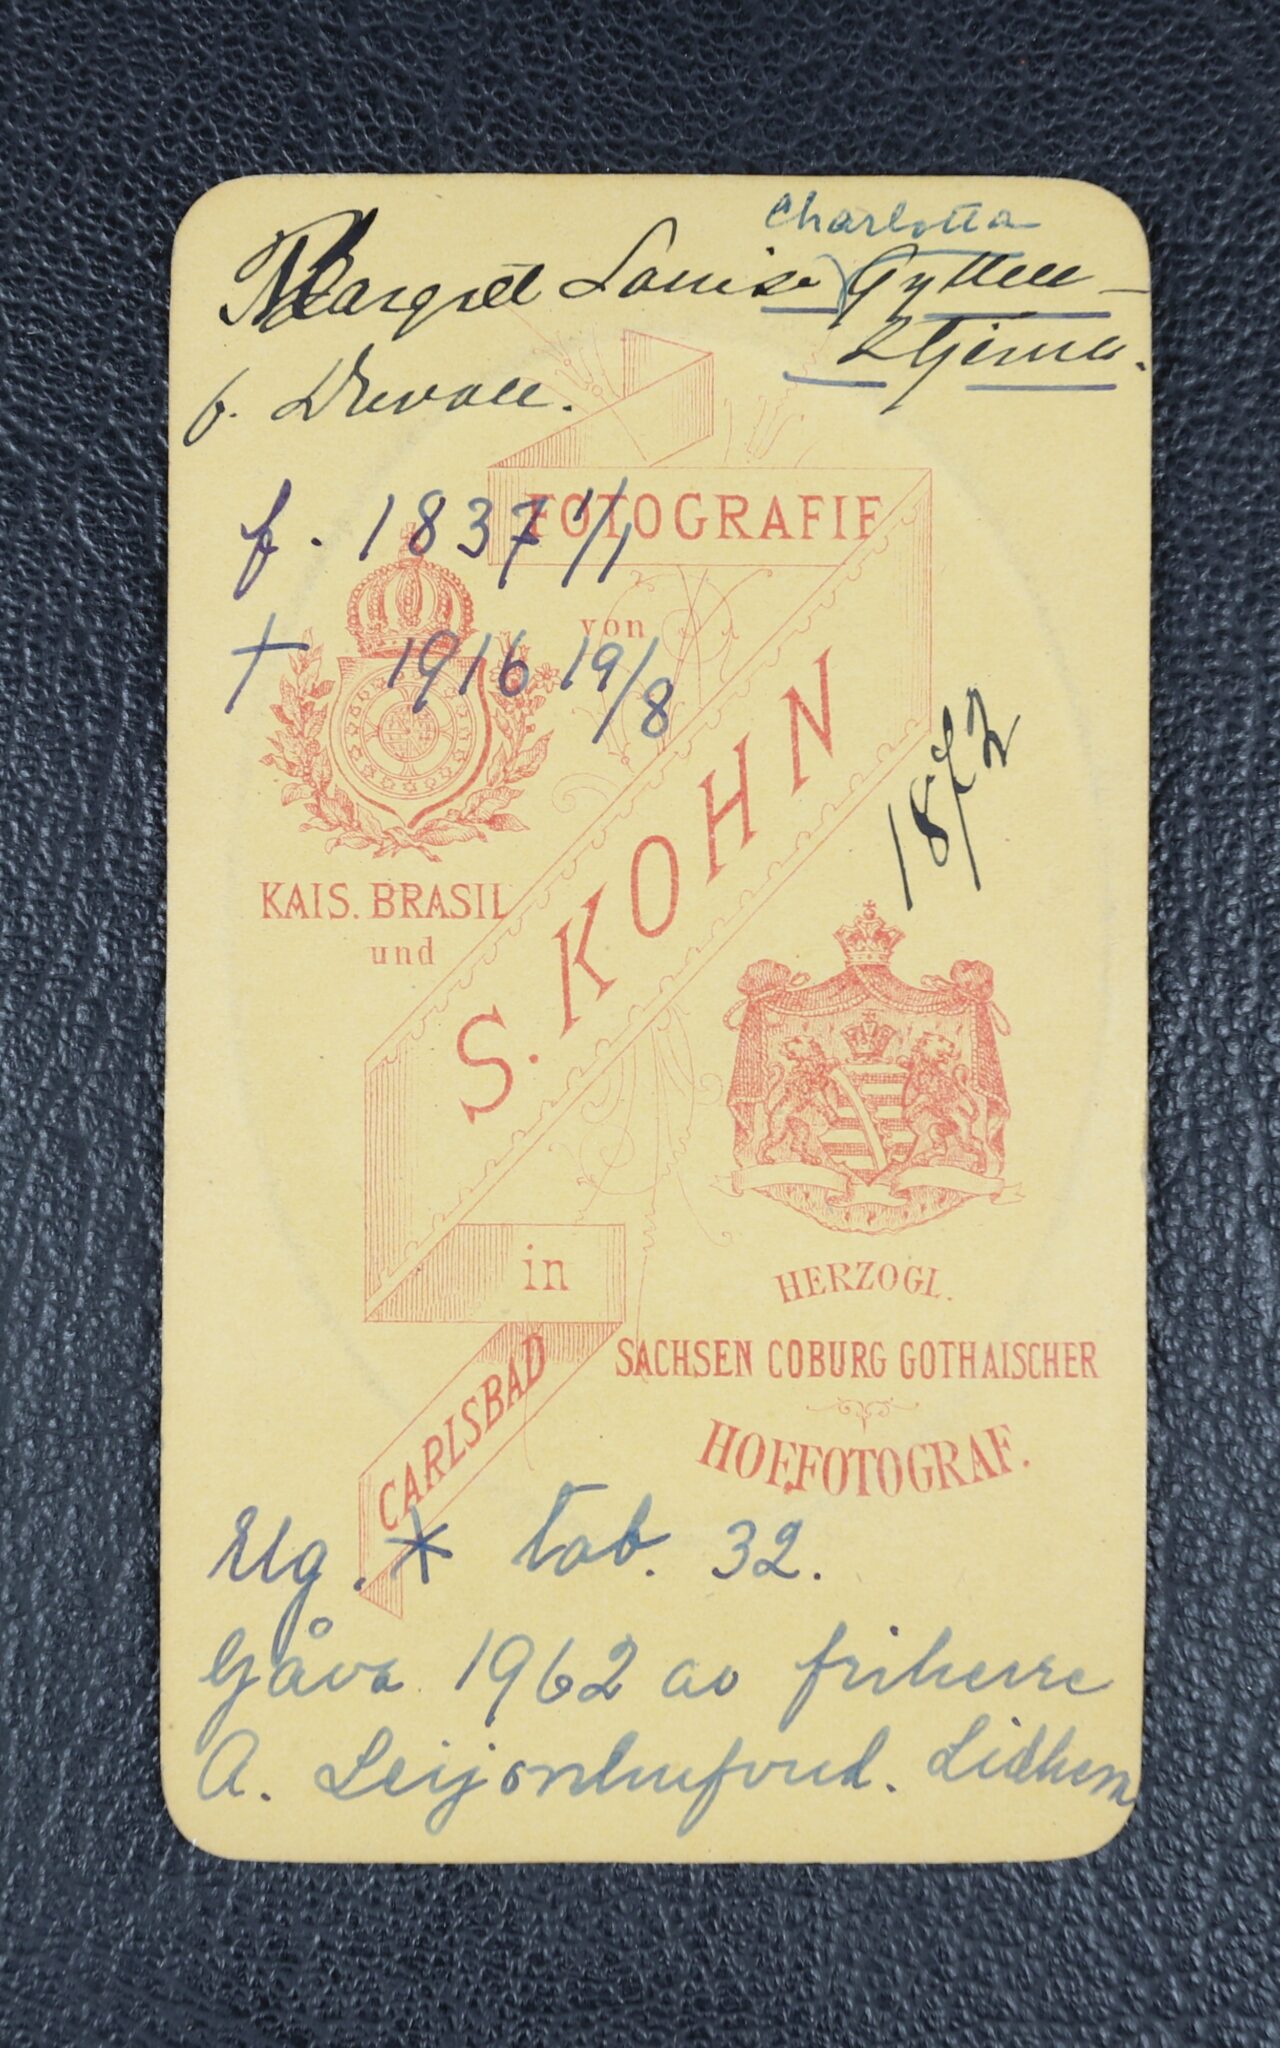 Charlotta
Margret Louise Gyllen-
Stjerna.
f. Duvall.
f. 1837 1/1
† 1916 19/8
1872
FOTOGRAFIE
von
S. KOHN
in
CARLSBAD
KAIS. BRASIL
und
HERZOGL.
SACHSEN COBURG GOTHAISCHER
HOF.FOTOGRAF.
Elg. * tab. 32.
Gåva 1962 av friherre
A. Leijonhufvud. Lidhem